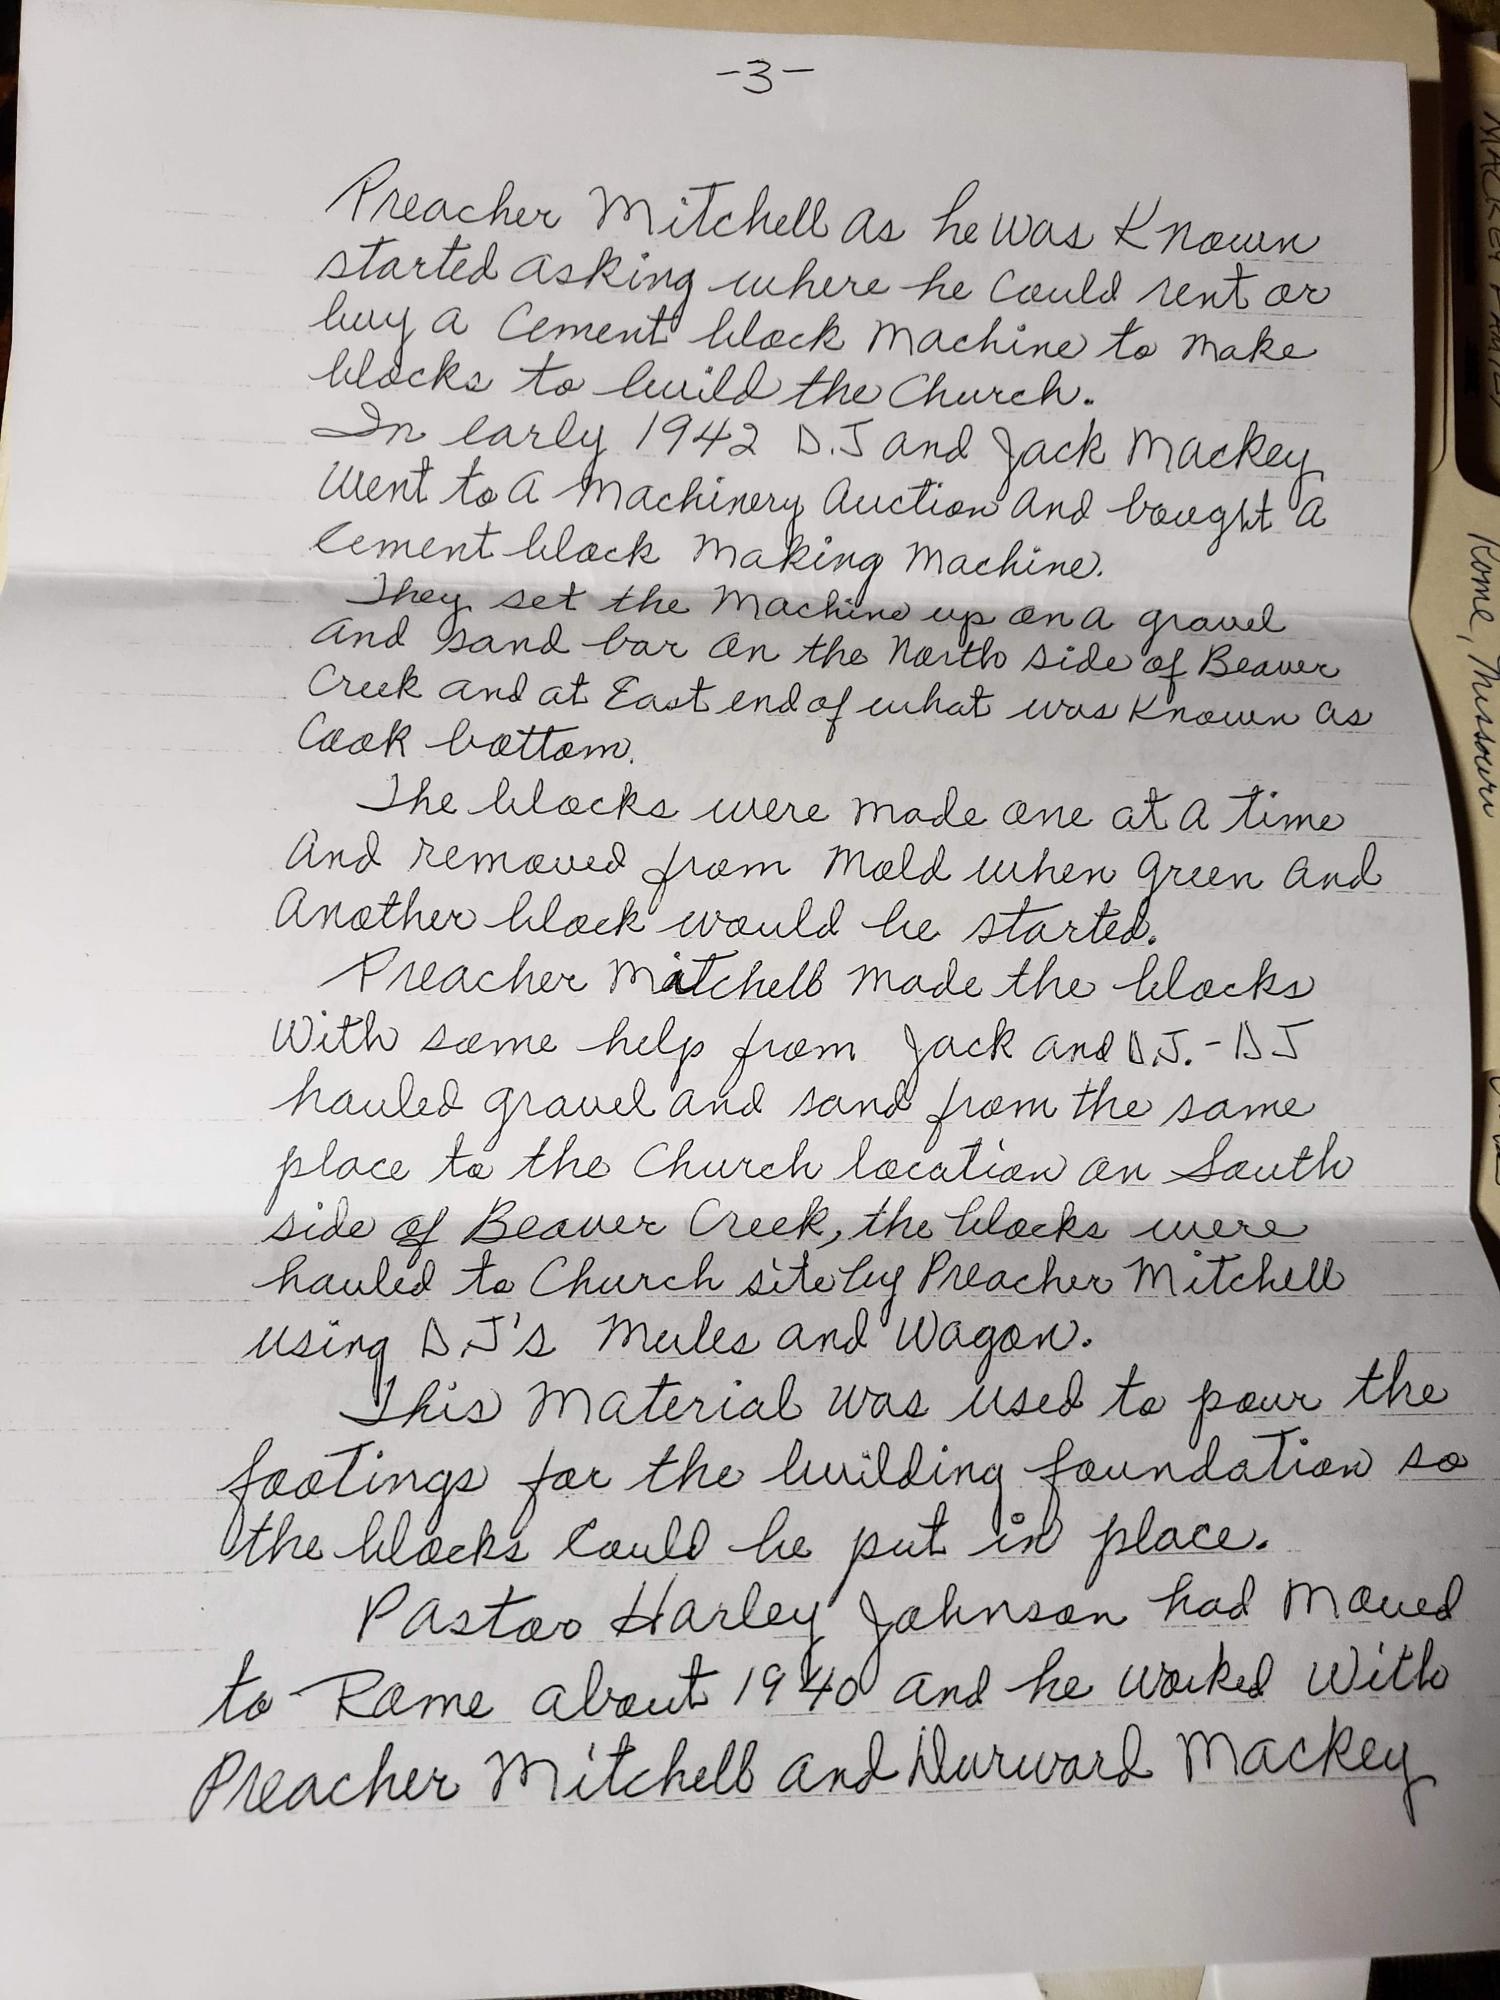 -3-
Preacher Mitchell as he was Known
started asking where he could rent or
buy a Cement block Machine to make
blocks to build the Church.
In early 1942 D.J and Jack Mackey
Went to A Machinery Auction And bought A
Cement block Making Machine.
They set the Machine up on a gravel
And sand bar on the North side of Beaver
Creek and at East end of what was Known as
Cook bottom.
The blocks were made one at A time
And removed from Mold when green And
Another block would be started.
Preacher Mitchell made the blocks
With some help from Jack and D.J. - DJ
hauled gravel and sand from the same
place to the Church location on South
side of Beaver Creek, the blocks were
hauled to Church site by Preacher Mitchell
using D.J's Mules and Wagon.
This Material was used to pour the
footings for the building foundation so
the blocks Could be put in place.
Pastor Harley Johnson had Moved
to Rome about 1940 and he worked With
Preacher Mitchell and Durward Mackey
MACKEY FAMILY
Rome, Missouri